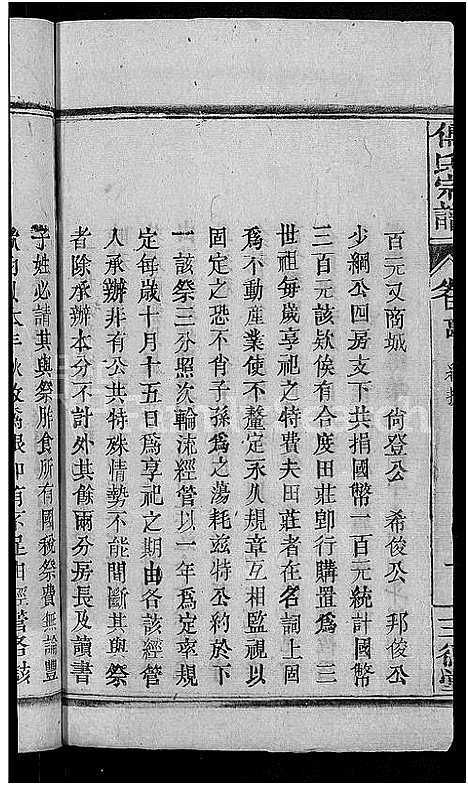 傅氏宗譜
卷首
三徳堂
百元又商城 尙登公 希俊公 邦俊公
少綱公四房支下共捐國幣一百元統計國幣
三百元該欵俟有合度田莊卽行購置爲 三
世祖每歲享祀之特費夫田莊者在名詞上固
爲不動産業使不釐定永久規章互相監視以
固定之恐不肖子孫爲之蕩耗茲特公約於下
一該祭三分照次輪流經管以一年爲定率規
定每歲十月十五日爲享祀之期由各該經管
人承辦非有公共特殊情勢不能間斷其與祭
者除承辦本分不計外其餘兩分房長及讀書
子姓必請其與祭胙食所有國稅祭費無論豐